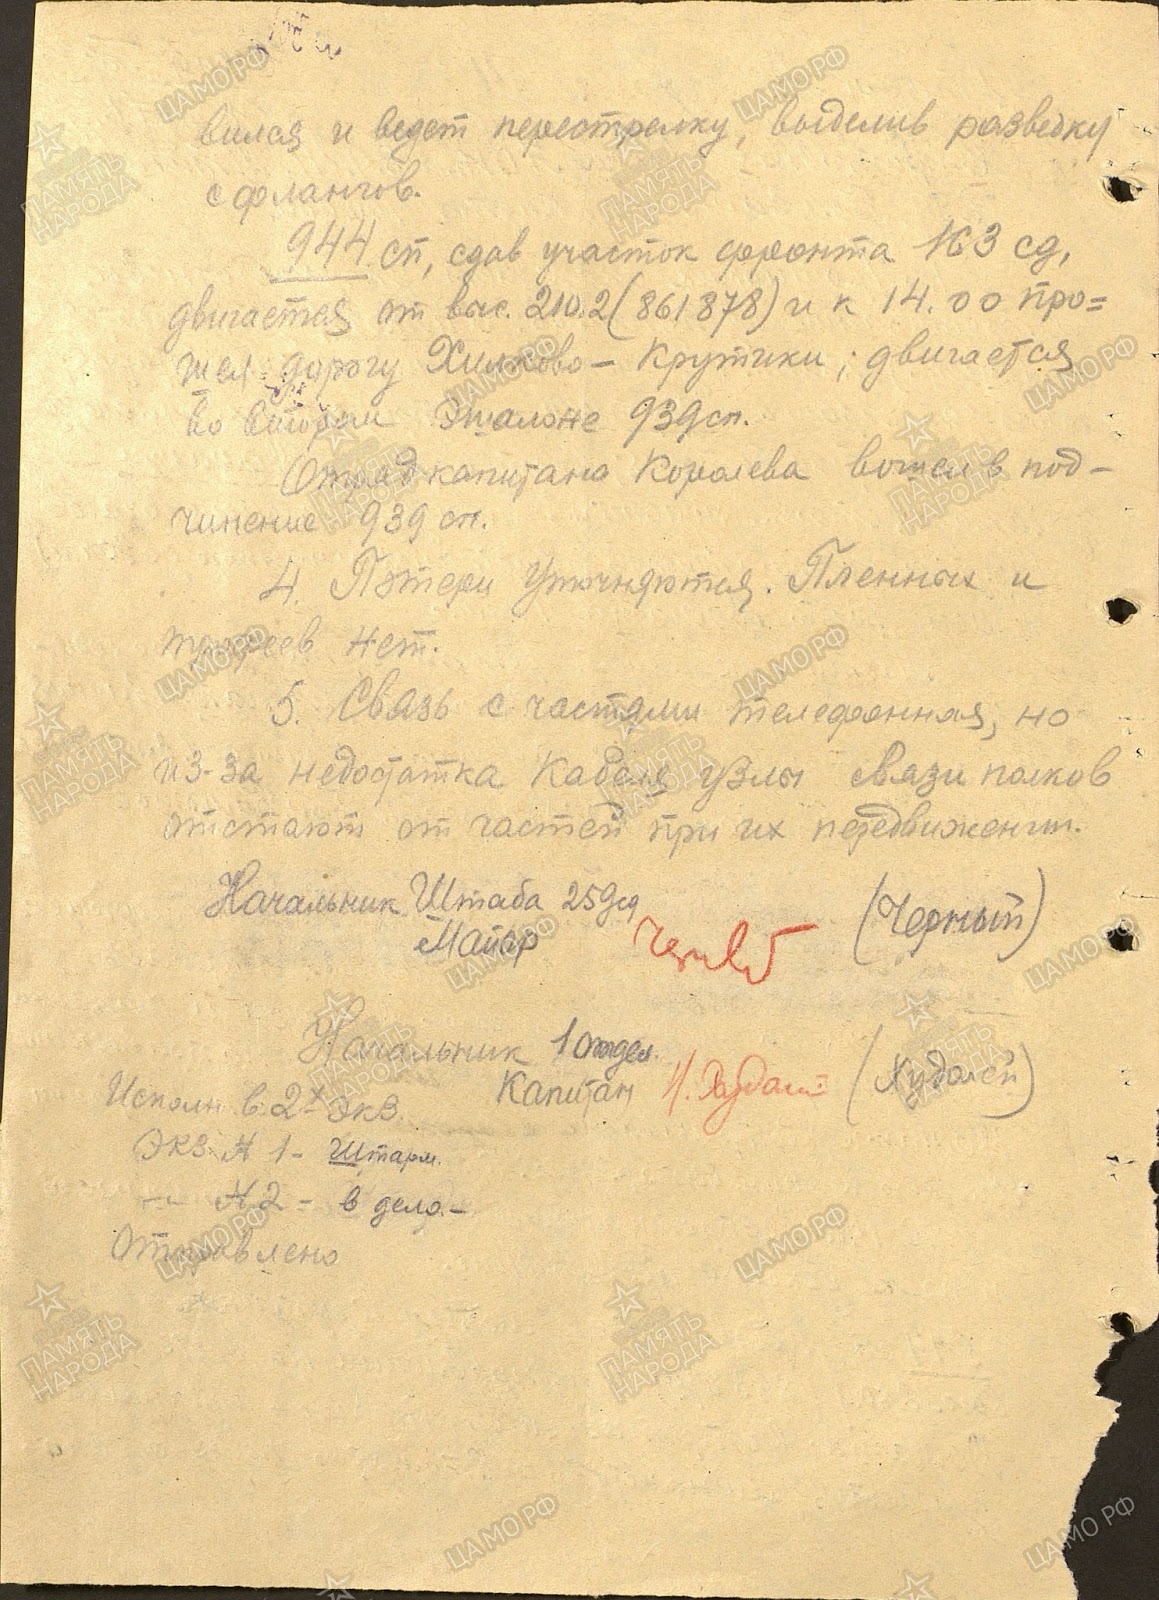 вился и ведет перестрелку, выделив разведку
с флангов.
944 сп, сдав участок фронта 163 сд,
двигается от выс. 210.2 (861878) и к 14.00 про=
шел дорогу Хилково – Крутики; двигается
во втором эшалоне 939 сп.
Отряд капитана Королева вошел в под-
чинение 939 сп.
4. Потери уточняются. Пленных и
трофеев нет.
5. Связь с частями телефонная, но
из-за недостатка кабеля узлы связи полков
отстают от частей при их передвижении.
Начальник Штаба 259 сд
Майор (Черный)
Начальник 1 отдел.
Капитан (Худолей)
Исполн. в 2х экз.
Экз. N 1 – Штарм.
–"– N 2 – в дело –
Отправлено
ПАМЯТЬ НАРОДА
ЦАМО РФ